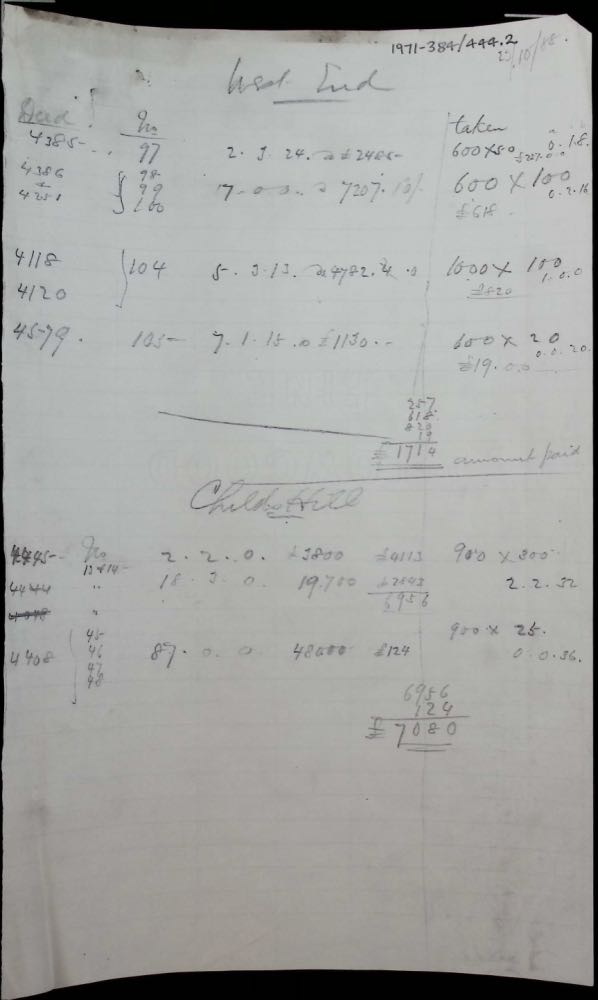 1971-384/444.2
23/10/88.
West End
Deed No taken
4385- 97 2. 3. 24. a £2485- 600 x 50 0.1.8.
£257.0.0
4386 98 600 x 100
& 99 17-0.0. a 7207. 10/- 0.2.16
4251 100 £618.
4118 104 5. 3.13. a 4782.4.0 1000 x 100
4120 1.0.0
£820
4579. 105- 7.1.18. a £1130.- 600 x 20
0.0.20.
£19.0.0
257
618
820
19
£ 1714 amount paid
Childs Hill
4445- No 2. 2. 0. £3800 £4113 900 x 300
13 & 14-
4444 " 18. 3. 0. 19.700 £2843 2.2.32
6956
"
45- 900 x 25.
4408 46 87. 0. 0. 48000 £124 0.0.36.
47
48
6956
124
£ 7080